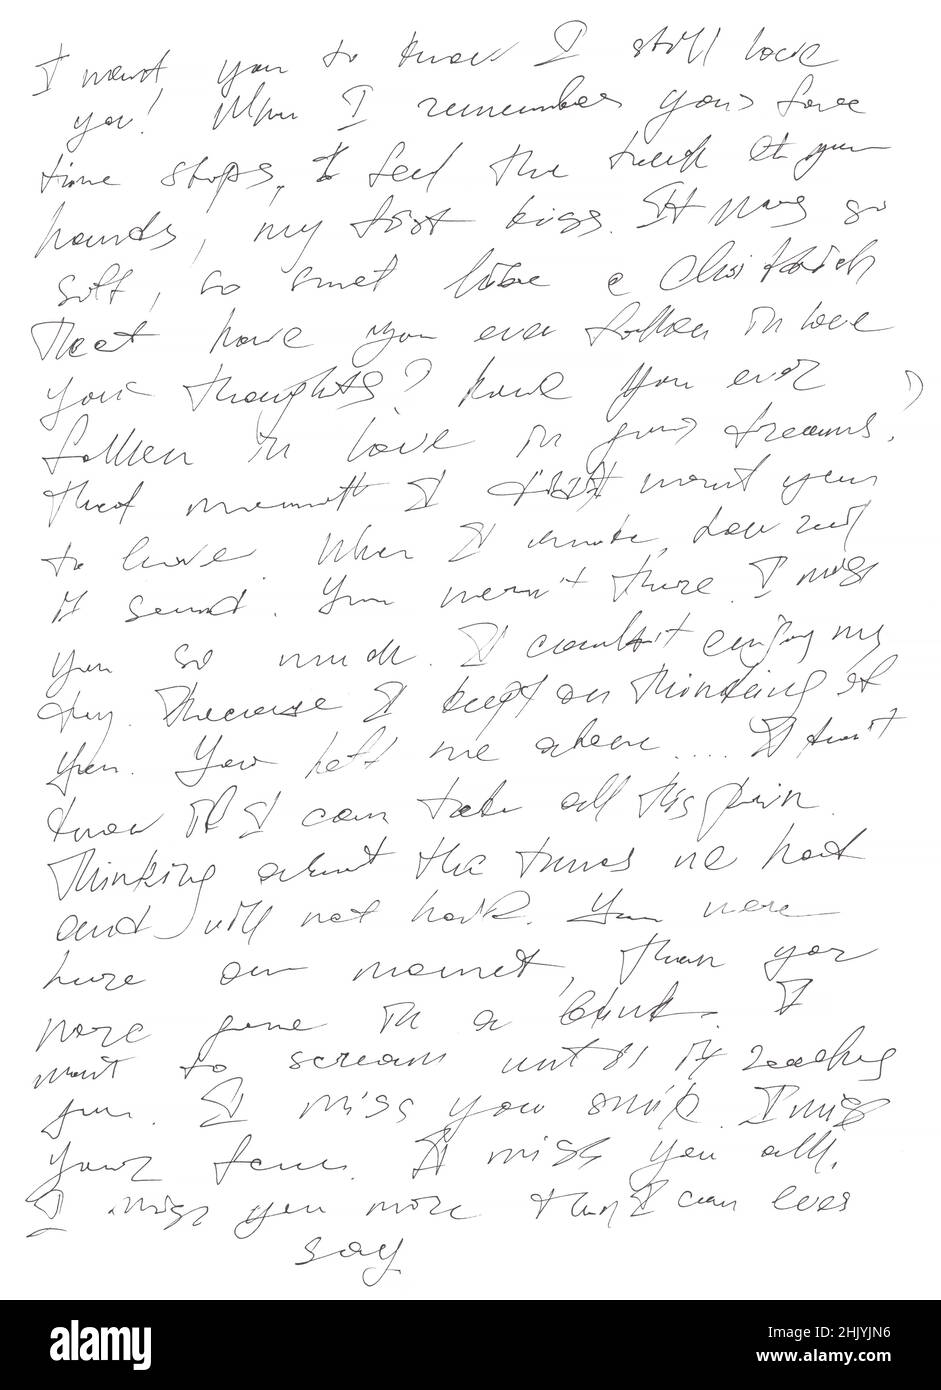 I want you to know I still love
you! When I remember your face
time stops, I feel the touch of your
hands, my first kiss. It was so
soft, so smel like a
that have you ever fallen in love
your thoughts? have you ever
fallen in love in your dreams?
that moment I didn't want you
to leave. When I
it send. You weren't there. I miss
you so much. I couldn't enjoy my
day. Because I kept on thinking of
you. You left me alone .... I don't
know if I can take all this pain.
Thinking about the times we had
and will not have. You were
here one moment, then you
were gone in a blink. I
want to scream until it reaches
you. I miss you smile. I miss
your face. I miss you all.
I miss you more than I can ever
say
alamy
Image ID: 2HJYJN6
www.alamy.com